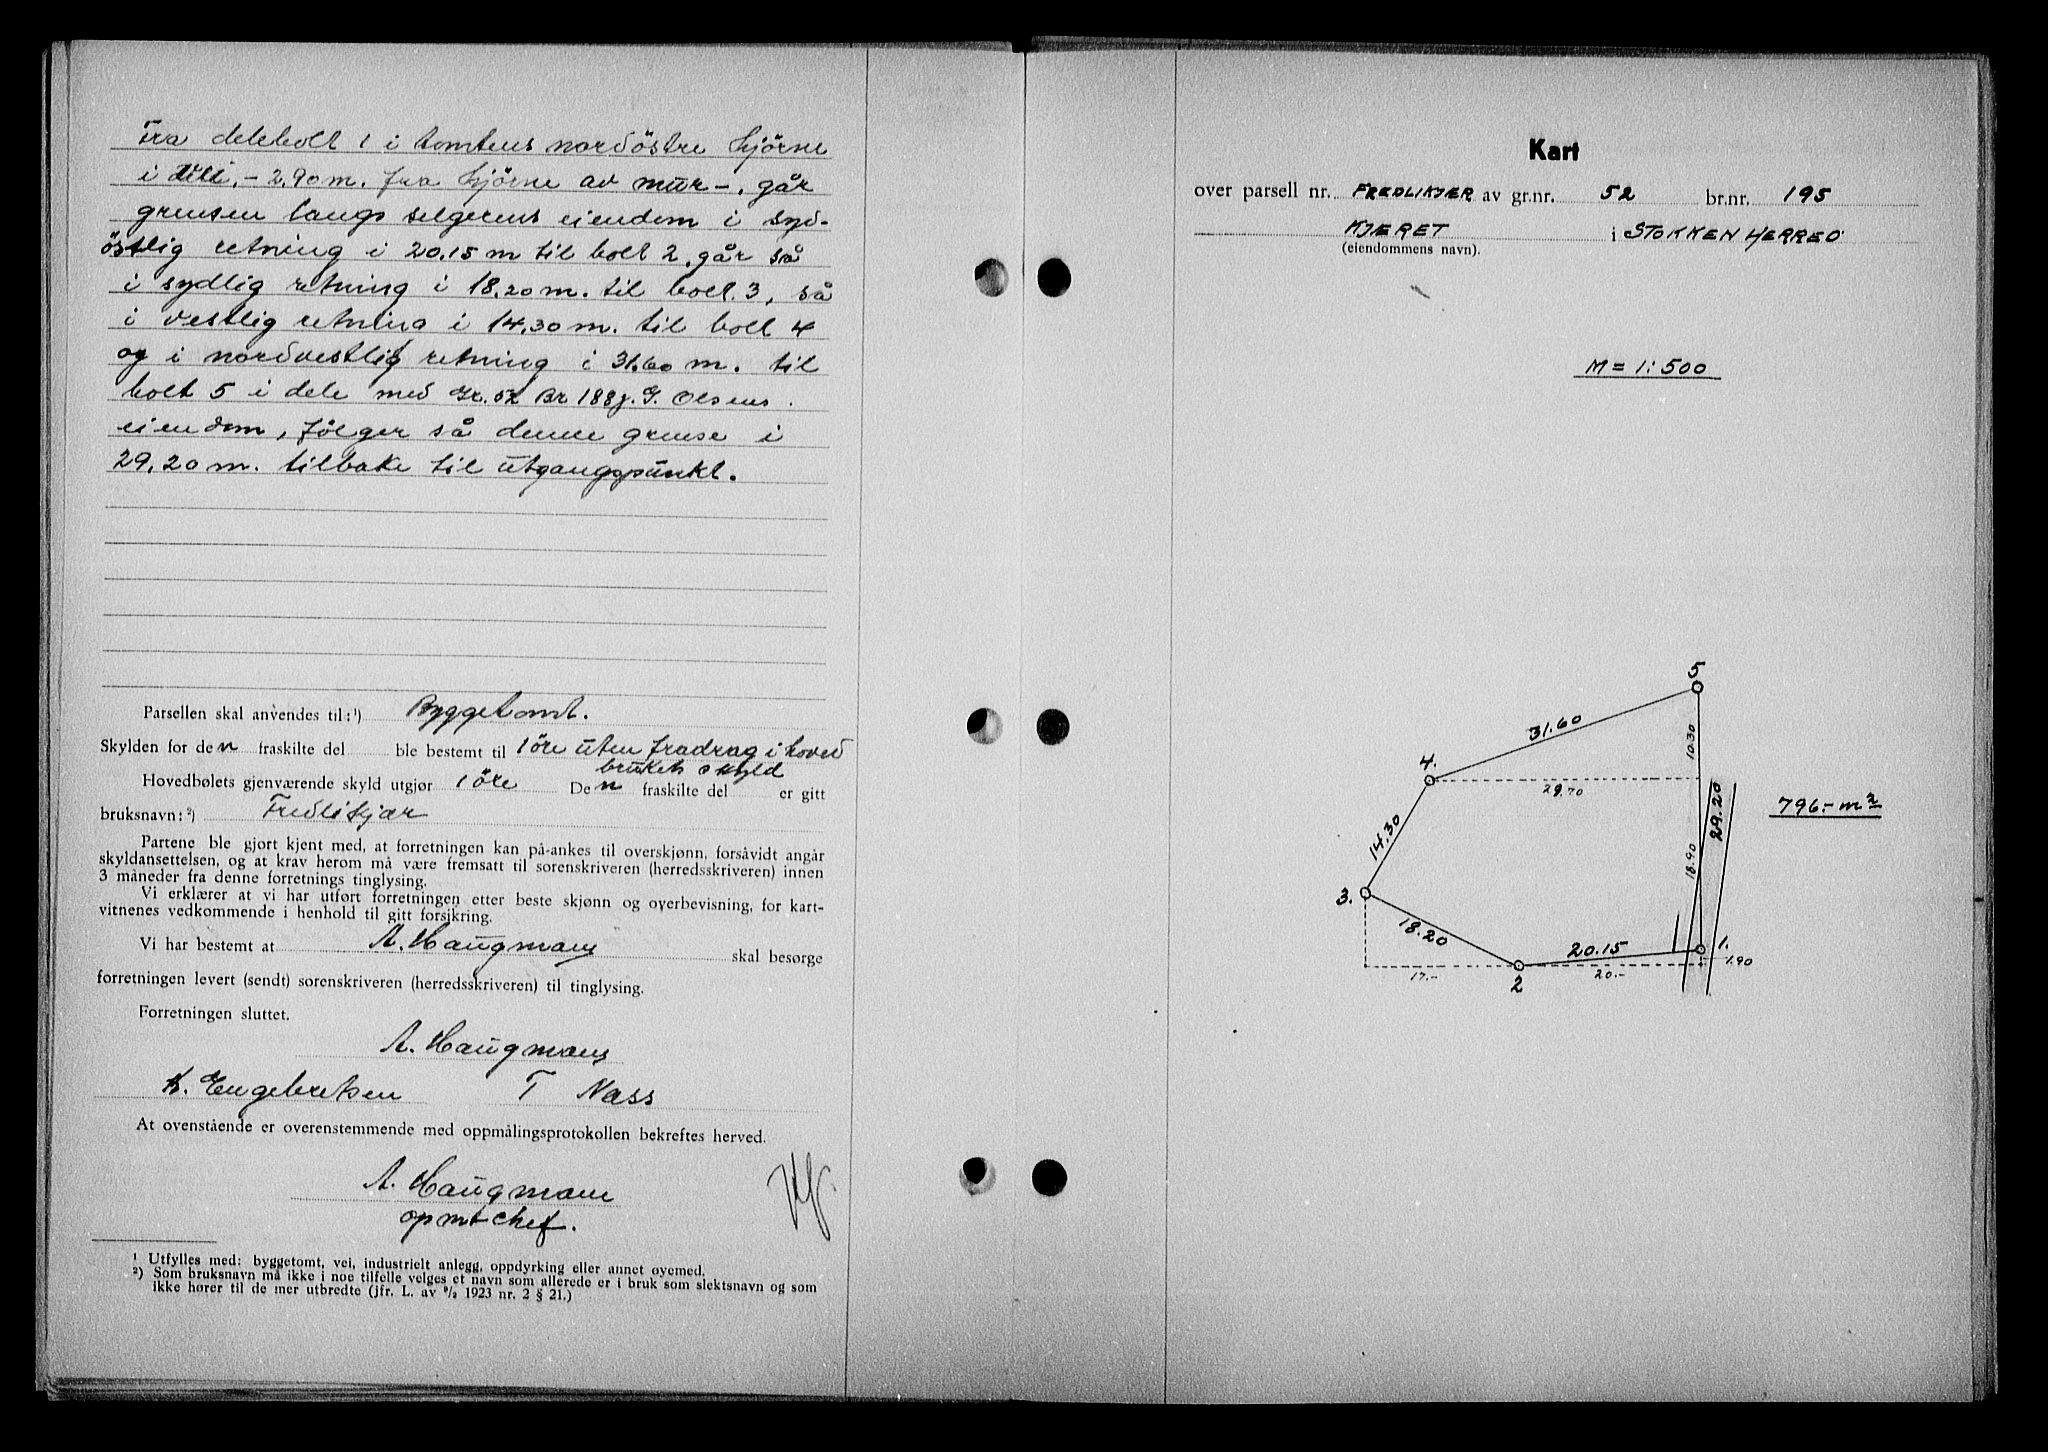 Fra delebolt 1 i tomtens nordöstre hjörne
i dele. - 2.90 m. fra hjörne av mur -. går
grensen langs selgerens eiendom i syd-
östlig retning i 20.15 m til bolt 2. går så
i sydlig retning i 18.20 m. til bolt. 3, så
i vestlig retning i 14.30 m. til bolt 4
og i nordvestlig retning i 31.60 m. til
bolt 5 i dele med Gr. 52 Br 188 G. Olsens
eiendom, fölger så denne grense i
29.20 m. tilbake til utgangspunkt.
Parsellen skal anvendes til:¹) Byggetomt.
Skylden for den fraskilte del ble bestemt til 1 öre uten fradrag i hoved
brukets skyld
Hovedbølets gjenværende skyld utgjør 1 öre Den fraskilte del er gitt
bruksnavn:²) Fredlikjær
Partene ble gjort kjent med, at forretningen kan på-ankes til overskjønn, forsåvidt angår
skyldansettelsen, og at krav herom må være fremsatt til sorenskriveren (herredsskriveren) innen
3 måneder fra denne forretnings tinglysing.
Vi erklærer at vi har utført forretningen etter beste skjønn og overbevisning, for kart-
vitnenes vedkommende i henhold til gitt forsikring.
Vi har bestemt at A. Haugmans skal besørge
forretningen levert (sendt) sorenskriveren (herredsskriveren) til tinglysing.
Forretningen sluttet.
A. Haugmans
K. Engebretsen T Nass
At ovenstående er overenstemmende med oppmålingsprotokollen bekreftes herved.
A. Haugmans
opmt chef.
¹ Utfylles med: byggetomt, vei, industrielt anlegg, oppdyrking eller annet øyemed.
²) Som bruksnavn må ikke i noe tilfelle velges et navn som allerede er i bruk som slektsnavn og som
ikke hører til de mer utbredte (jfr. L. av 9/2 1923 nr. 2 § 21.)
Kart
over parsell nr. FREDLIKJÆR av gr.nr. 52 br.nr. 195
KJÆRET i STOKKEN HERRED
(eiendommens navn).
M = 1:500
5
31.60
10.30
4.
29.70
29.20
796.- m²
14.30
18.90
3.
18.20
20.15
1.
1.90
17.-
2
20.-